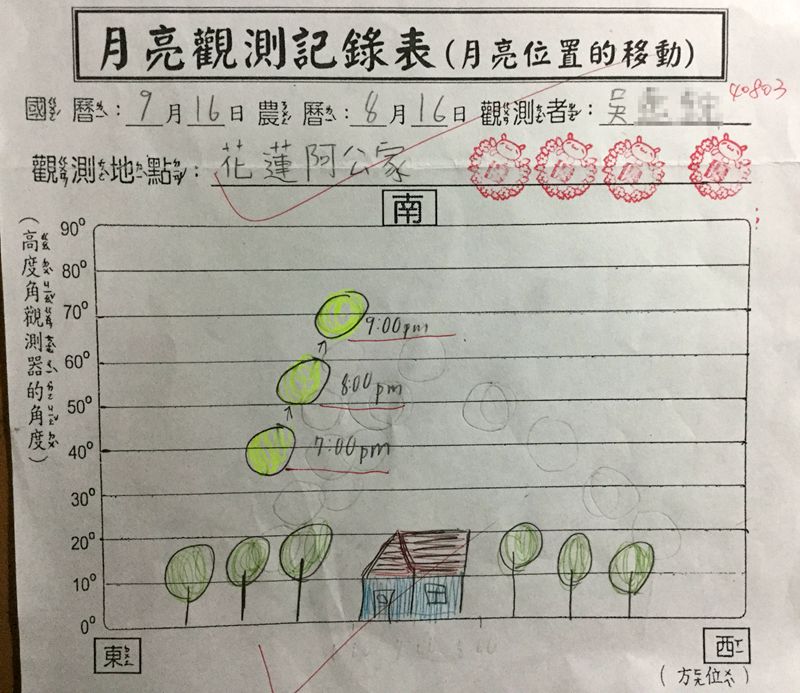 月亮觀測記錄表(月亮位置的移動)
國曆: 9月16日 農曆: 8月16日 觀測者: 吳
40803
觀測地點: 花蓮阿公家
優 優 優 優
南
(高度角觀測器的角度)
90°
80°
70°
9:00pm
60°
8:00pm
50°
7:00pm
40°
30°
20°
10°
0°
東
西
(方位)